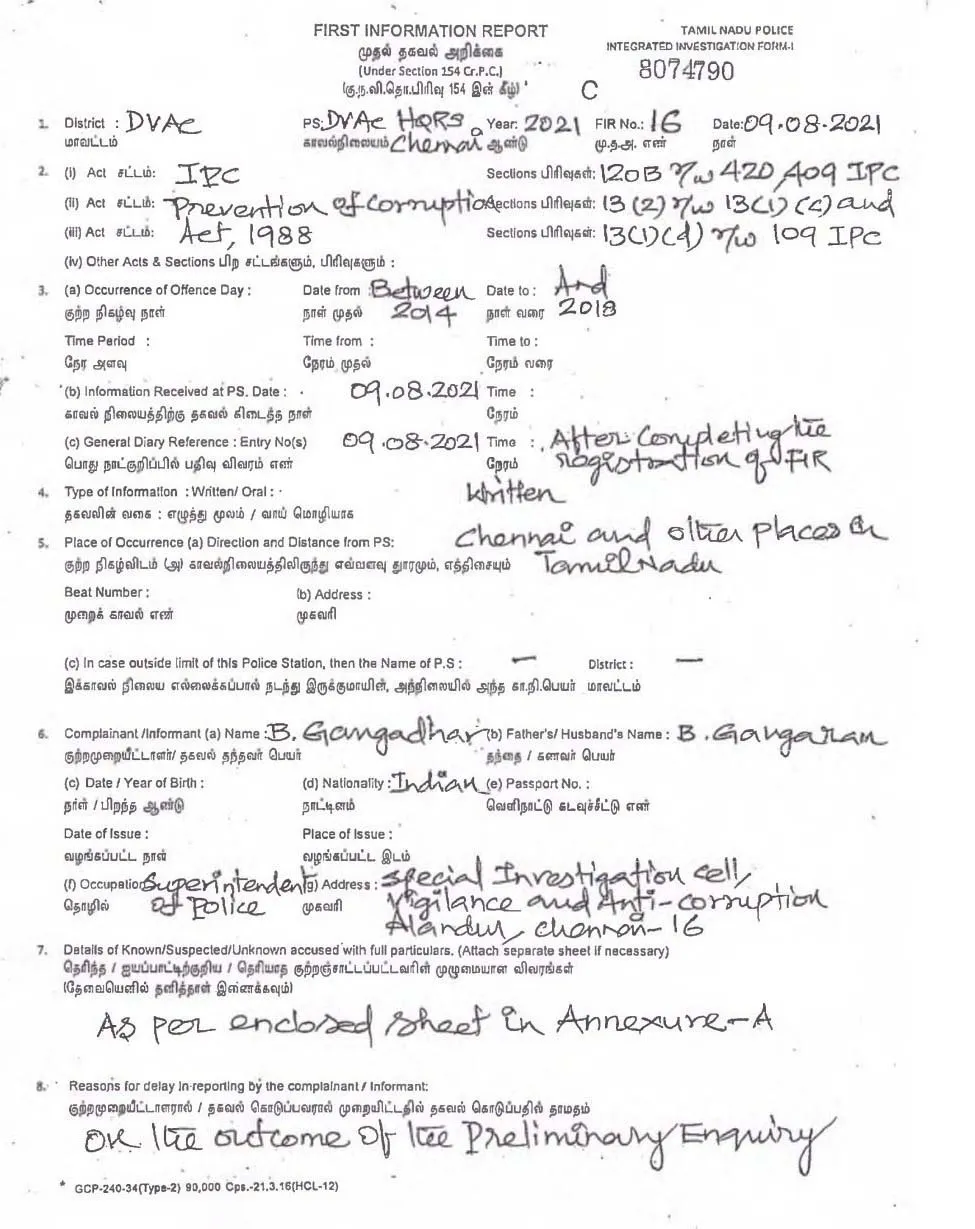 FIRST INFORMATION REPORT
TAMIL NADU POLICE
முதல் தகவல் அறிக்கை
INTEGRATED INVESTIGATION FORM-I
(Under Section 154 Cr.P.C.)
8074790
(கு.ந.வி.தொ.பிரிவு 154 இன் கீழ்)
C
1. District : DVAC PS: DVAC HQRS Year: 2021 FIR No.: 16 Date: 09.08.2021
மாவட்டம் காவல்நிலையம் Chennai ஆண்டு மு.த.அ. எண் நாள்
2. (i) Act சட்டம்: IPC Sections பிரிவுகள்: 120B r/w 420, 409 IPC
(ii) Act சட்டம்: Prevention of Corruption Sections பிரிவுகள்: 13 (2) r/w 13(1) (c) and
(iii) Act சட்டம்: Act, 1988 Sections பிரிவுகள்: 13(1)(d) r/w 109 IPC
(iv) Other Acts & Sections பிற சட்டங்களும், பிரிவுகளும் :
3. (a) Occurrence of Offence Day : Date from : Between Date to : And
குற்ற நிகழ்வு நாள் நாள் முதல் 2014 நாள் வரை 2018
Time Period : Time from : Time to :
நேர அளவு நேரம் முதல் நேரம் வரை
(b) Information Received at PS. Date : 09.08.2021 Time :
காவல் நிலையத்திற்கு தகவல் கிடைத்த நாள் நேரம்
(c) General Diary Reference : Entry No(s) 09.08.2021 Time : After Completing the
பொது நாட்குறிப்பில் பதிவு விவரம் எண் நேரம் registration of FIR
4. Type of Information : Written/ Oral : Written
தகவலின் வகை : எழுத்து மூலம் / வாய் மொழியாக
5. Place of Occurrence (a) Direction and Distance from PS: Chennai and other places in
குற்ற நிகழ்விடம் (அ) காவல்நிலையத்திலிருந்து எவ்வளவு தூரமும், எத்திசையும் Tamil Nadu
Beat Number : (b) Address :
முறைக் காவல் எண் முகவரி
(c) In case outside limit of this Police Station, then the Name of P.S : — District : —
இக்காவல் நிலைய எல்லைக்கப்பால் நடந்து இருக்குமாயின், அந்நிலையில் அந்த கா.நி.பெயர் மாவட்டம்
6. Complainant /Informant (a) Name : B. Gangadhar (b) Father's/ Husband's Name : B. Gangaram
குற்றமுறையீட்டாளர்/ தகவல் தந்தவர் பெயர் தந்தை / கணவர் பெயர்
(c) Date / Year of Birth : (d) Nationality : Indian (e) Passport No. :
நாள் / பிறந்த ஆண்டு நாட்டினம் வெளிநாட்டு கடவுச்சீட்டு எண்
Date of Issue : Place of Issue :
வழங்கப்பட்ட நாள் வழங்கப்பட்ட இடம்
(f) Occupation Superintendent (g) Address : Special Investigation Cell,
தொழில் of Police முகவரி Vigilance and Anti-corruption
Alandur, Chennai-16
7. Details of Known/Suspected/Unknown accused with full particulars. (Attach separate sheet if necessary)
தெரிந்த / ஐயப்பாட்டிற்குரிய / தெரியாத குற்றஞ்சாட்டப்பட்டவரின் முழுமையான விவரங்கள்
(தேவையெனில் தனித்தாள் இணைக்கவும்)
As per enclosed sheet in Annexure-A
8. Reasons for delay in reporting by the complainant / Informant:
குற்றமுறையீட்டாளரால் / தகவல் கொடுப்பவரால் முறையிட்டதில் தகவல் கொடுப்பதில் தாமதம்
On the outcome of the Preliminary Enquiry
* GCP-240-34(Type-2) 90,000 Cps.-21.3.16(HCL-12)